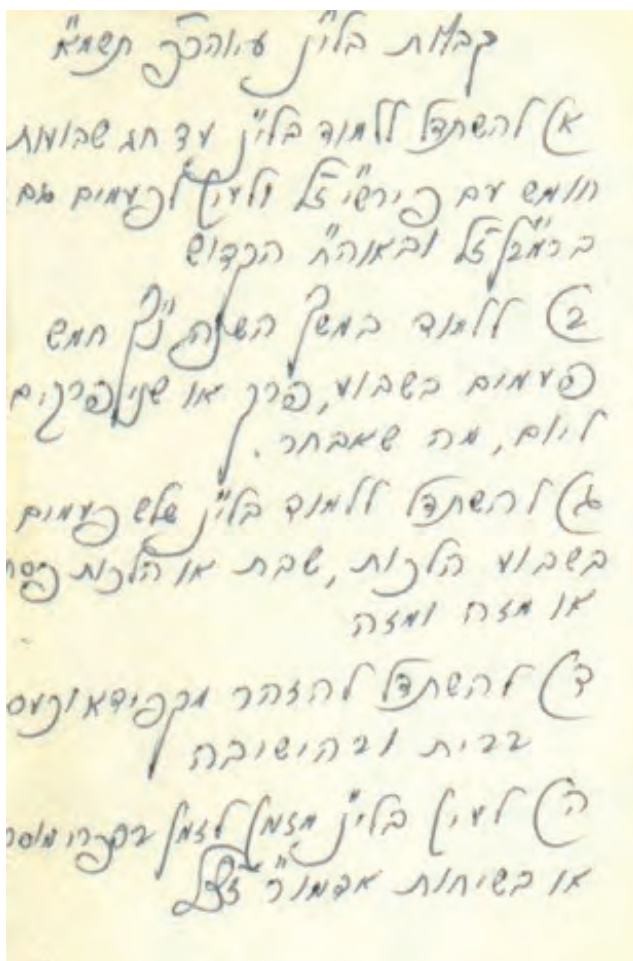 קבלות בלי"נ עיוהכ"פ תשמ"א
א) להשתדל ללמוד בלי"נ עד חג שבועות
חומש עם פירש"י ז"ל ולעיין לפעמים גם
ברמב"ן ז"ל ובאוה"ח הקדוש
ב) ללמוד במשך השנה נ"ך חמש
פעמים בשבוע, פרק או שני פרקים
ליום, מה שאבחר.
ג) להשתדל ללמוד בלי"נ שלש פעמים
בשבוע הלכות, שבת או הלכות פסח
או מזה ומזה
ד) להשתדל להזהר מקפידא וכעס
בבית ובהישיבה
ה) לעיין בלי"נ מזמן לזמן בספרי מוסר
או בשיחות אדמו"ר זצ"ל